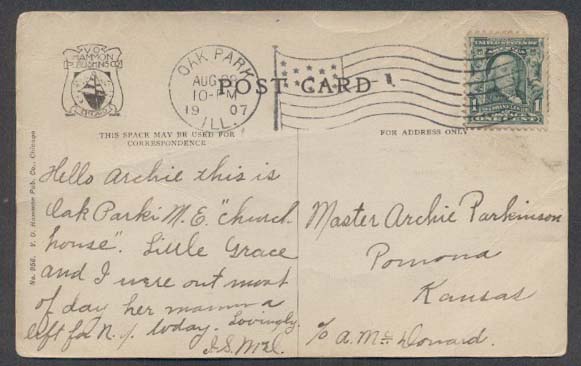 V.O.
HAMMON
PUBLISHING CO.
CHICAGO
OAK PARK
AUG 28
10-PM
1907
ILL.
POST CARD
UNITED STATES
1 1
ONE CENT
THIS SPACE MAY BE USED FOR
CORRESPONDENCE
FOR ADDRESS ONLY
No. 956. V. O. Hammon Pub. Co., Chicago
Hello Archie this is
Oak Park M.E. "church
house". Little Grace
and I were out most
of day her mamma
left for N.Y. today. Lovingly
Master Archie Parkinson
Pomona
Kansas
c/o A. Mc Donard.